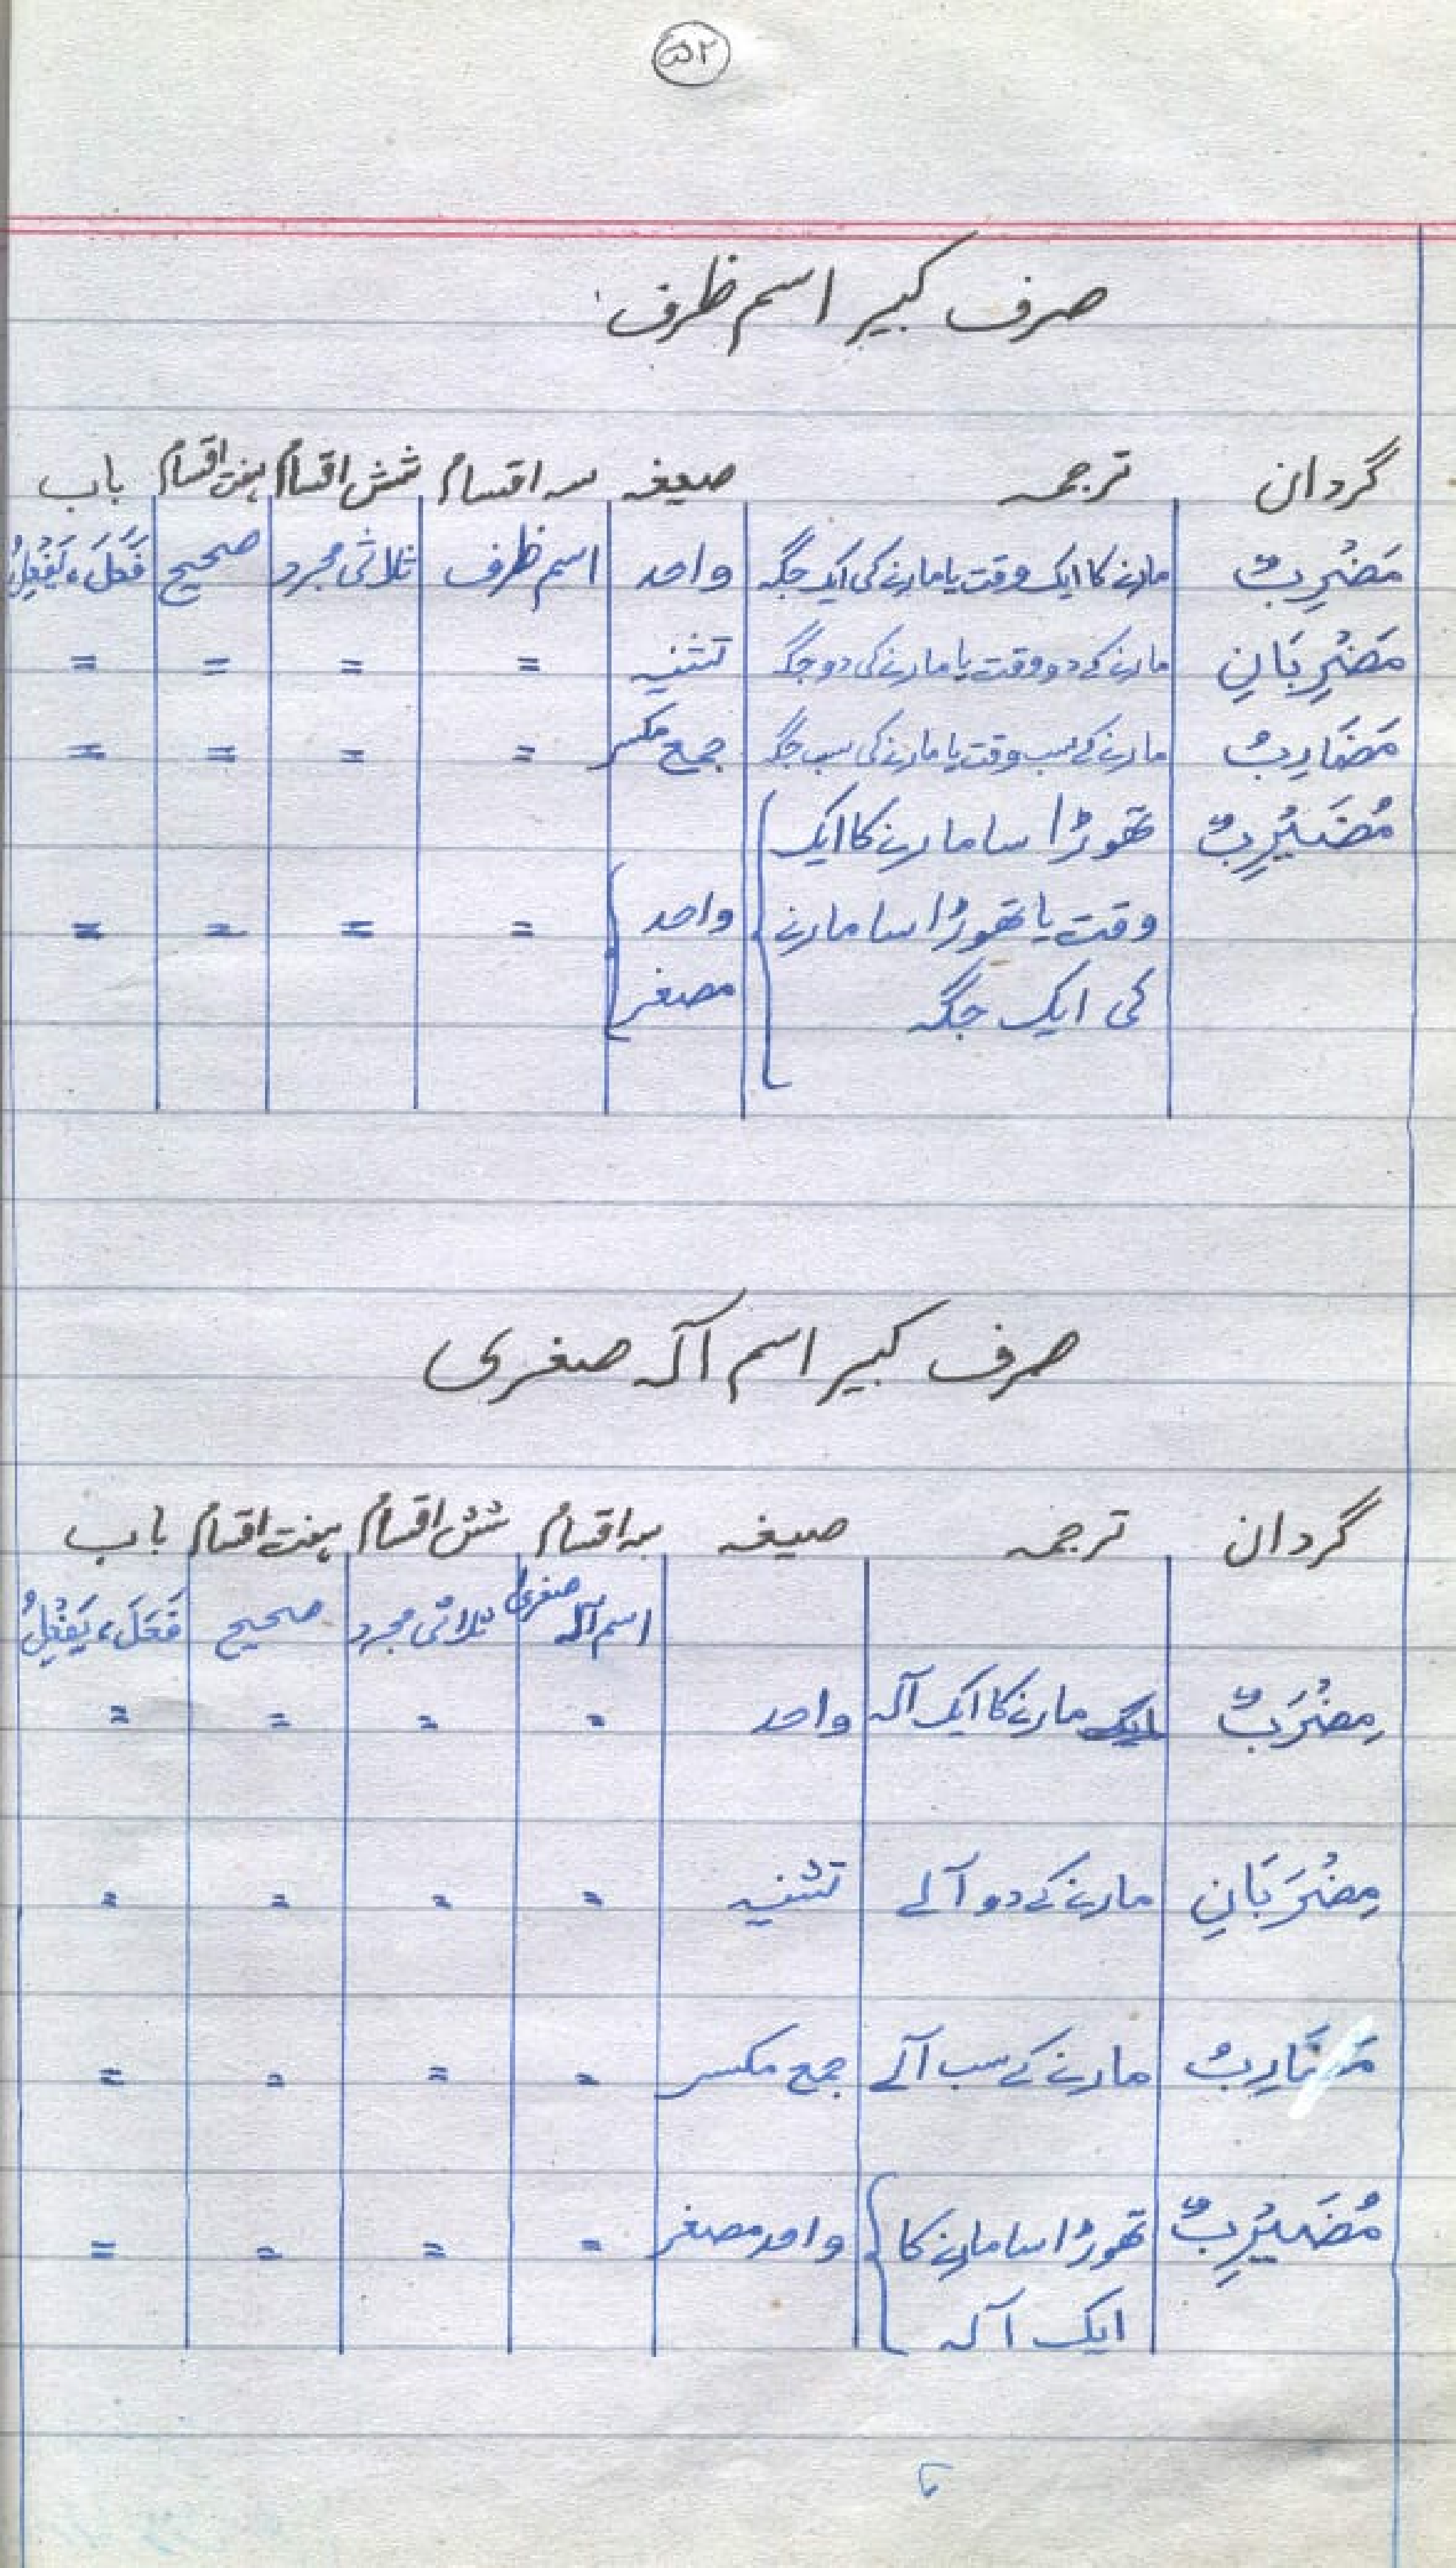 ۵۲
صرف کبیر اسم ظرف
گردان ترجمہ صیغہ سہ اقسام شش اقسام ہفت اقسام باب
مَضْرِبٌ مارنے کا ایک وقت یا مارنے کی ایک جگہ واحد اسم ظرف ثلاثی مجرد صحیح فَعَلَ، یَفْعِلُ
مَضْرِبَانِ مارنے کے دو وقت یا مارنے کی دو جگہ تثنیہ = = = =
مَضَارِبُ مارنے کے سب وقت یا مارنے کی سب جگہ جمع مکسر = = = =
مُضَیْرِبٌ تھوڑا سا مارنے کا ایک
وقت یا تھوڑا سا مارنے واحد = = = =
کی ایک جگہ مصغر
صرف کبیر اسم آلہ صغریٰ
گردان ترجمہ صیغہ سہ اقسام شش اقسام ہفت اقسام باب
اسم آلہ صغریٰ ثلاثی مجرد صحیح فَعَلَ، یَفْعِلُ
مِضْرَبٌ مارنے کا ایک آلہ واحد = = = =
مِضْرَبَانِ مارنے کے دو آلے تثنیہ = = = =
مَضَارِبُ مارنے کے سب آلے جمع مکسر = = = =
مُضَیْرِبٌ تھوڑا سا مارنے کا واحد مصغر = = = =
ایک آلہ